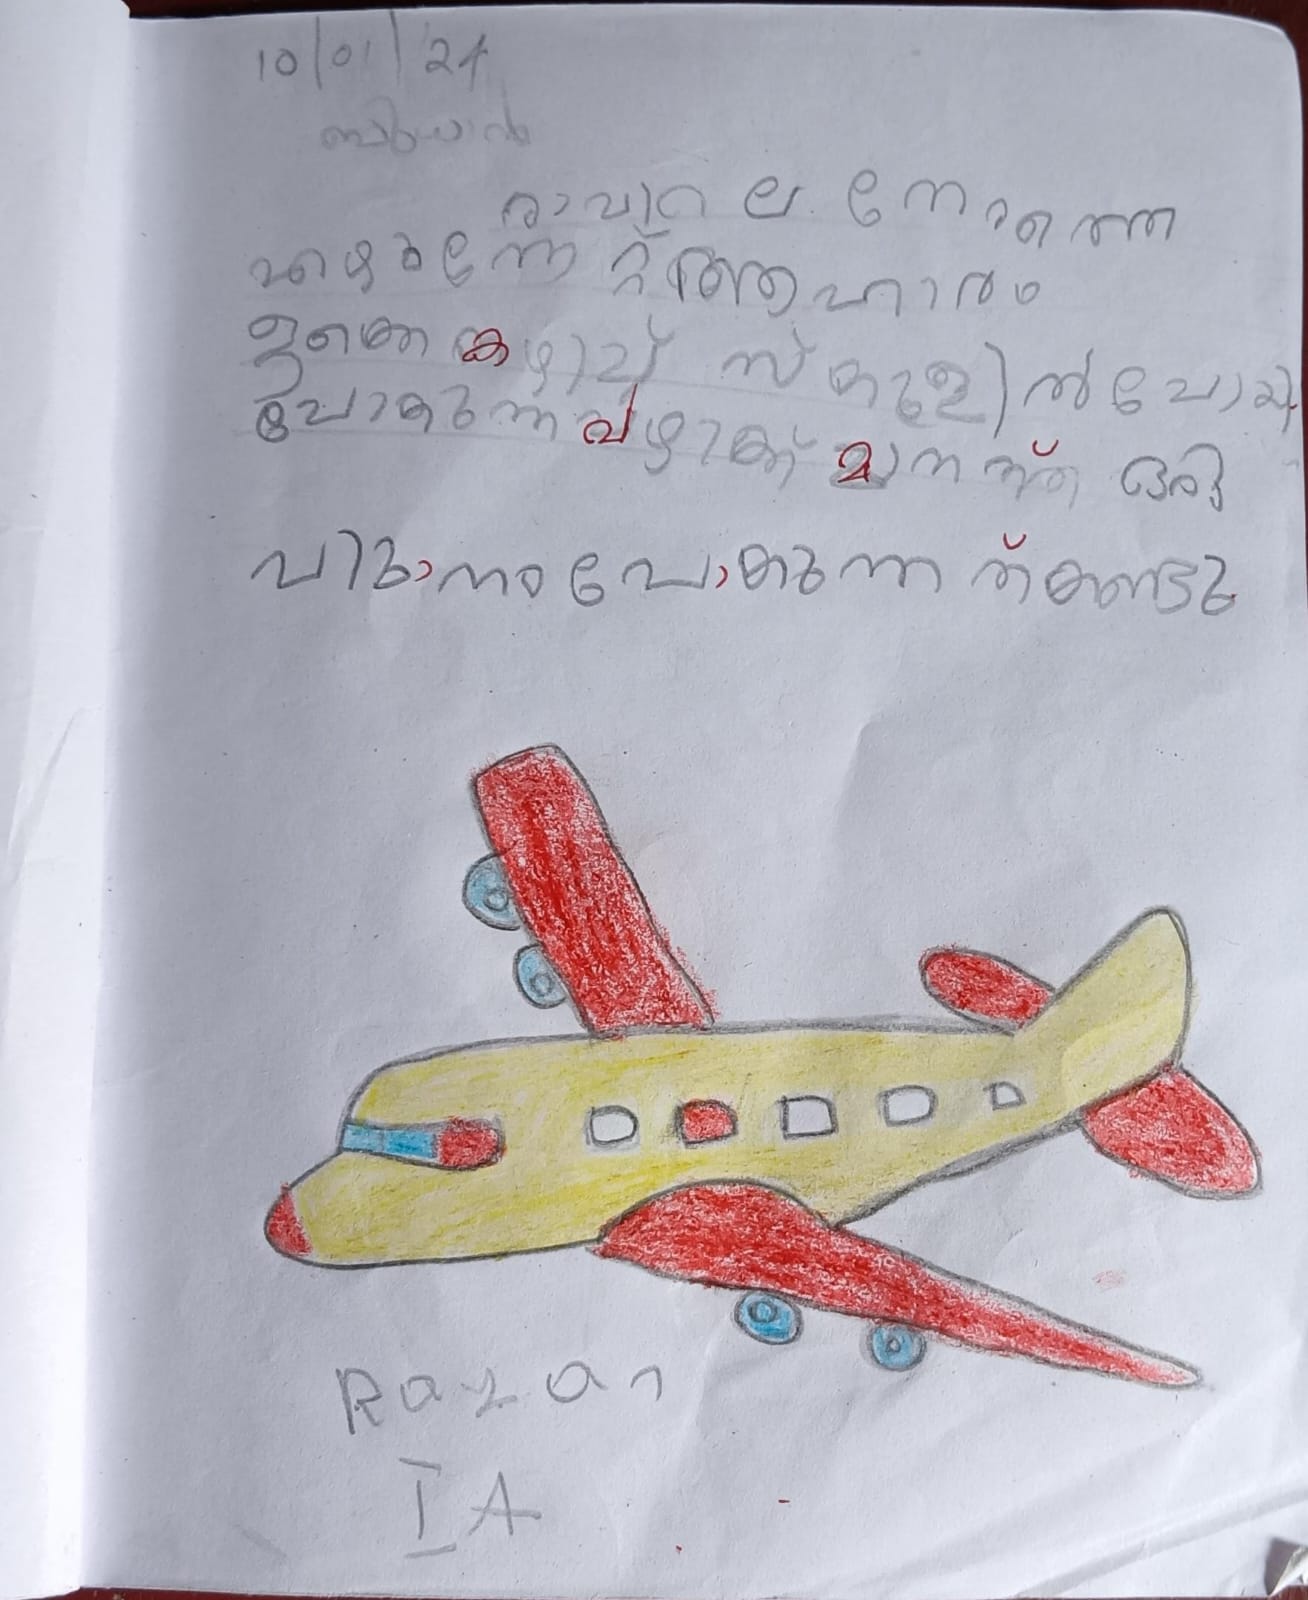 10/01/24
ബുധൻ
രാവിലെ നേരത്തെ
എഴുന്നേറ്റ് ആഹാരം
ഒക്കെ കഴിച്ച് സ്കൂളിൽ പോയി
പോകുന്ന വഴിക്ക് മാനത്ത് ഒരു
വിമാനം പോകുന്നത് കണ്ടു
Razan
I A